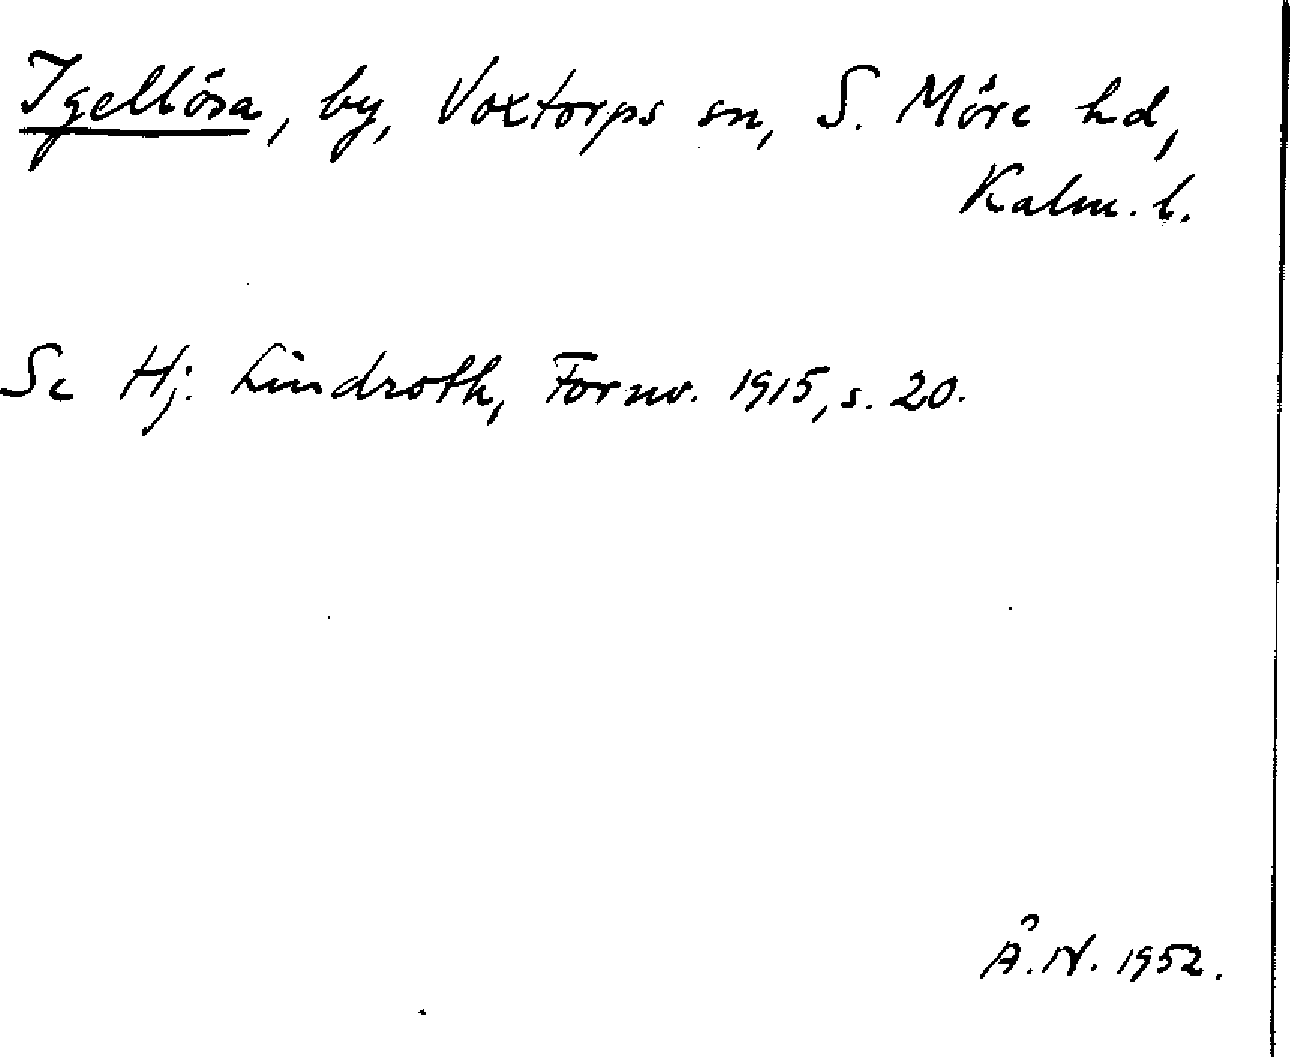 Igellösa, by, Voxtorps sn, S. Möre hd,
Kalm. l.
Se Hj. Lindroth, Fornv. 1915, s. 20.
Å. N. 1952.